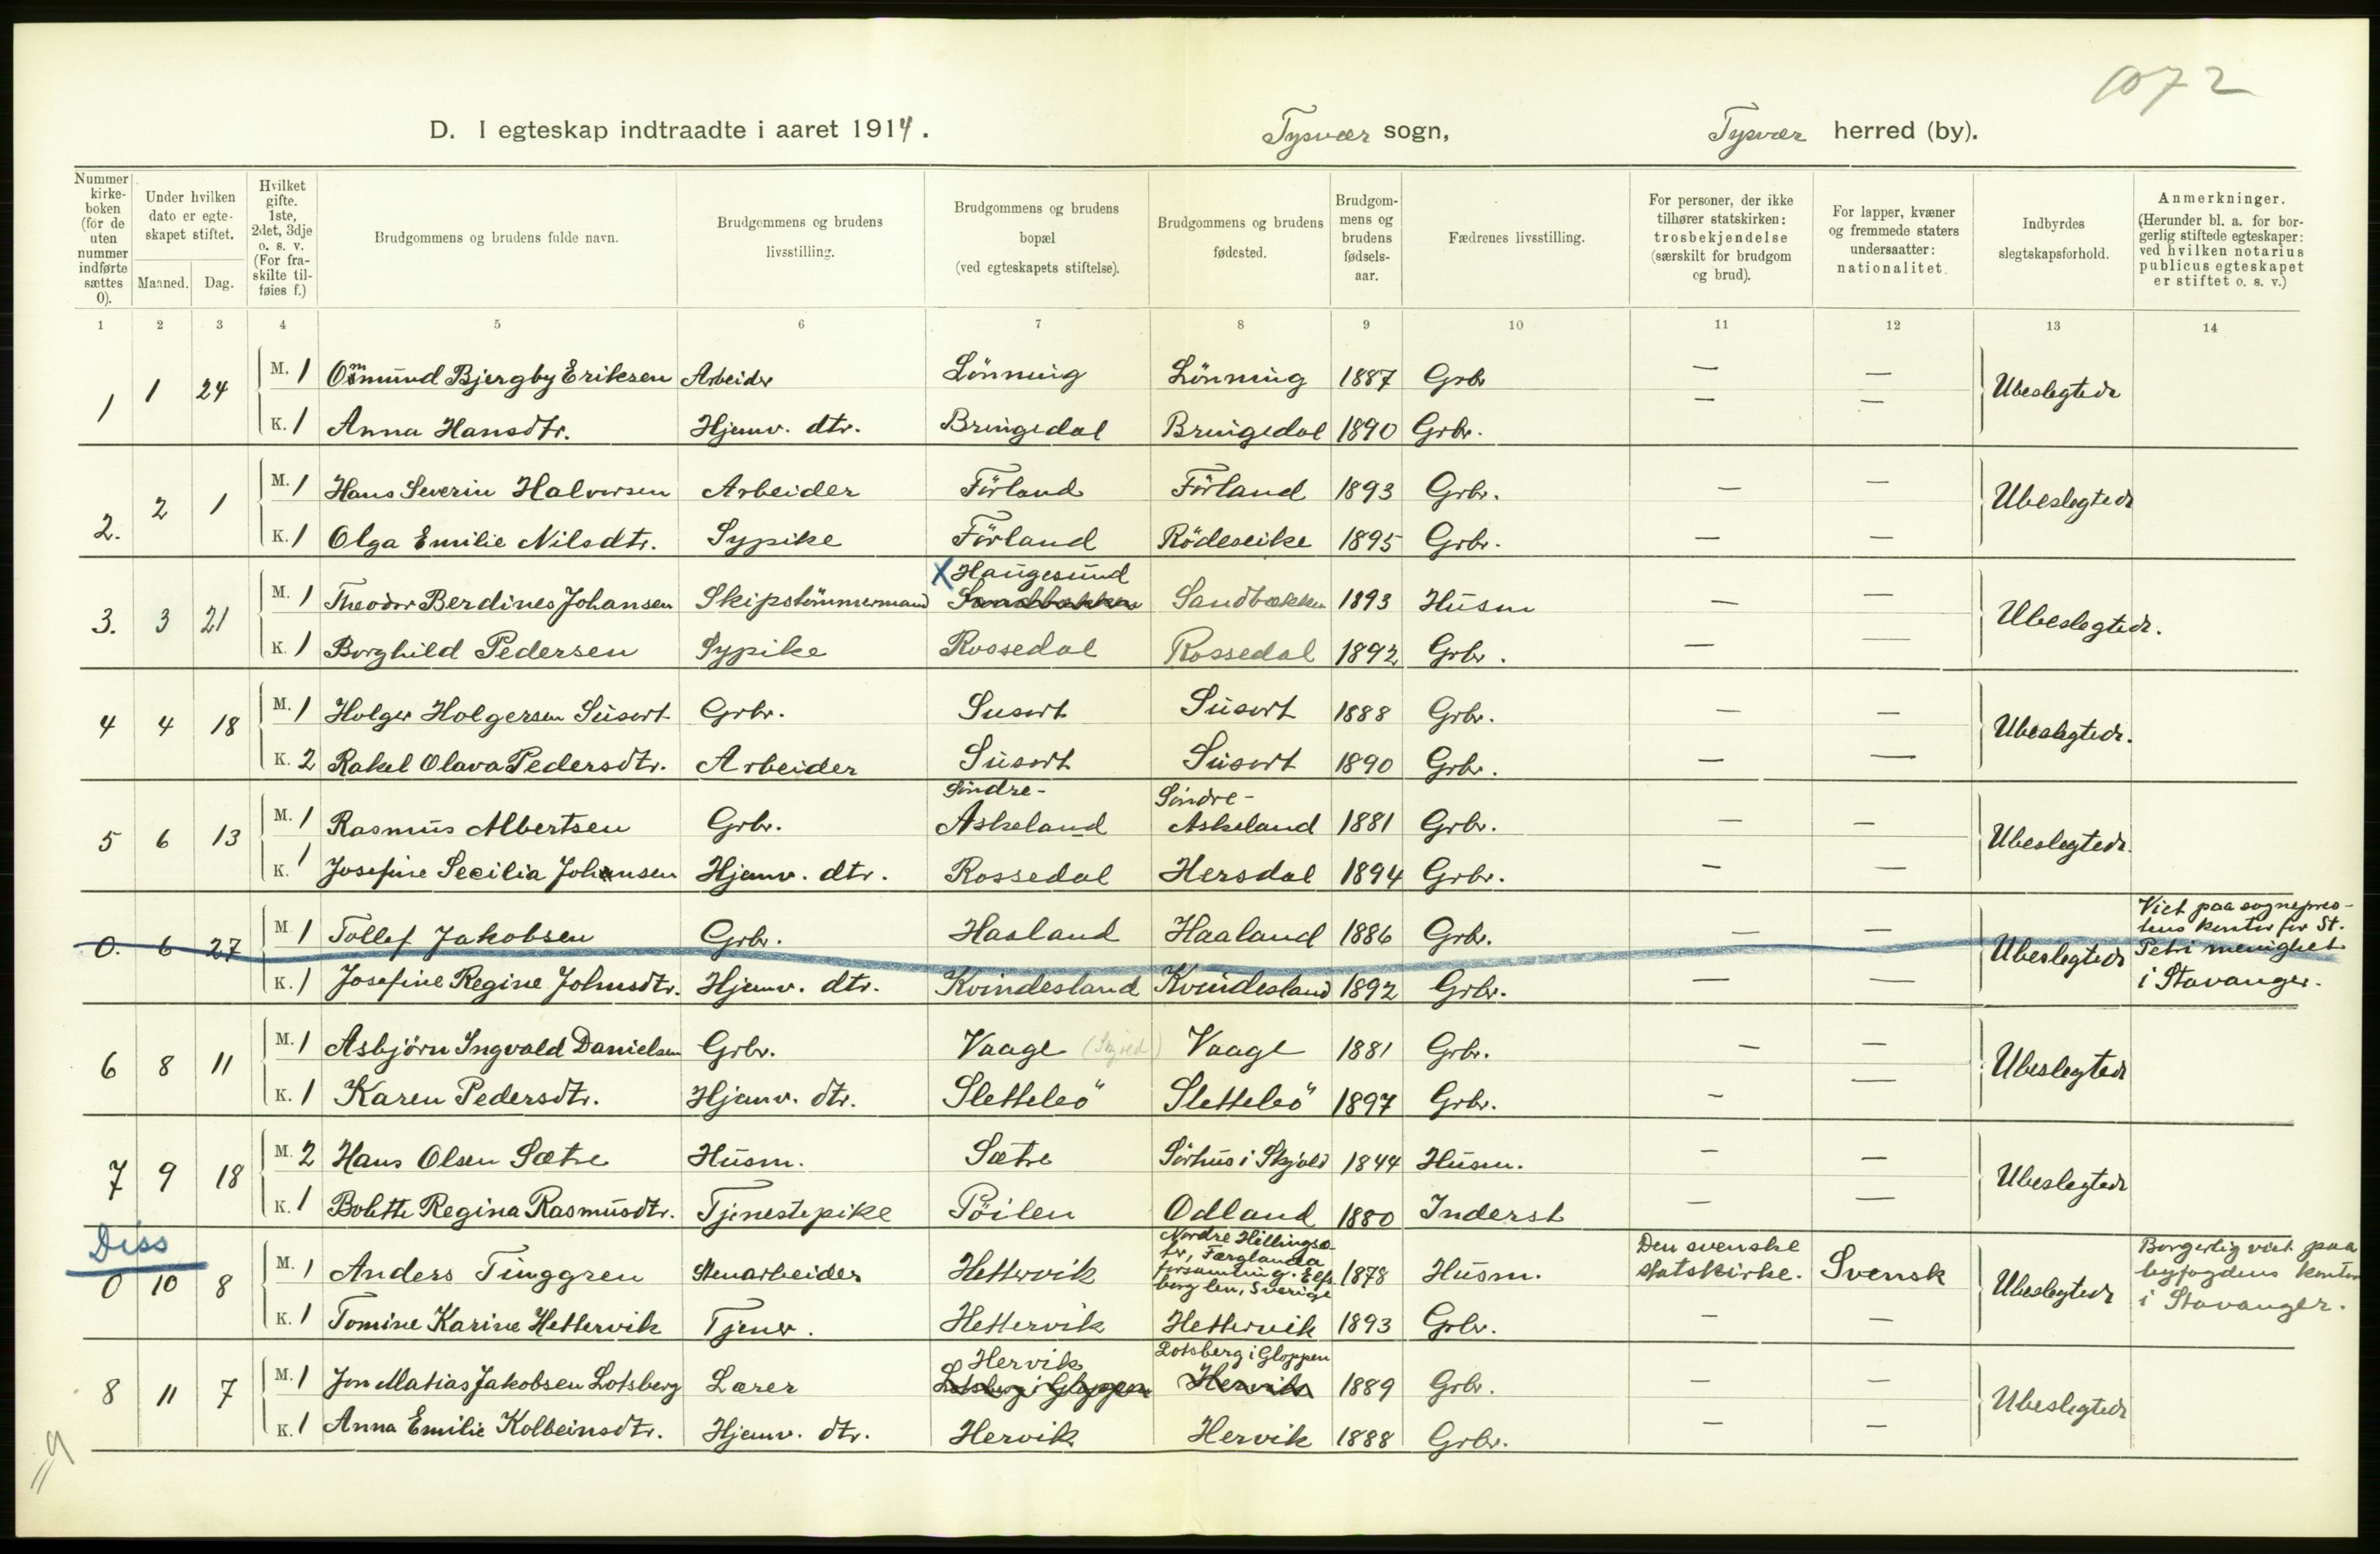 1072
D. I egteskap indtraadte i aaret 1914. Tysvær sogn, Tysvær herred (by).
Nummer i kirkeboken (for de uten nummer indførte sættes 0).
Under hvilken dato er egteskapet stiftet.
Maaned. Dag.
Hvilket gifte. 1ste, 2det, 3dje o. s. v. (For fraskilte tilføies f.)
Brudgommens og brudens fulde navn.
Brudgommens og brudens livsstilling.
Brudgommens og brudens bopæl (ved egteskapets stiftelse).
Brudgommens og brudens fødested.
Brudgommens og brudens fødselsaar.
Fædrenes livsstilling.
For personer, der ikke tilhører statskirken: trosbekjendelse (særskilt for brudgom og brud).
For lapper, kvæner og fremmede staters undersaatter: nationalitet.
Indbyrdes slegtskapsforhold.
Anmerkninger. (Herunder bl. a. for borgerlig stiftede egteskaper: ved hvilken notarius publicus egteskapet er stiftet o. s. v.)
1 2 3 4 5 6 7 8 9 10 11 12 13 14
1 1 24 M. 1 Ommund Bjergby Eriksen Arbeider Lönning Lönning 1887 Grbr — — Ubeslegtede
K. 1 Anna Hansdtr. Hjemv. dtr. Bringedal Bringedal 1890 Grbr. — —
2. 2 1 M. 1 Hans Severin Halvorsen Arbeider Förland Förland 1893 Grbr. — — Ubeslegtede
K. 1 Olga Emilie Nilsdtr. Sypike Förland Rödeseike 1895 Grbr. — —
X Haugesund
3. 3 21 M. 1 Theodor Berdines Johansen Skipstömmermand Sandbækken Sandbækken 1893 Husm — — Ubeslegtede.
K. 1 Borghild Pedersen Sypike Rossedal Rossedal 1892 Grbr. — —
4 4 18 M. 1 Holger Holgersen Susort Grbr. Susort Susort 1888 Grbr. — — Ubeslegtede.
K. 2 Rakel Olava Pedersdtr. Arbeider Susort Susort 1890 Grbr. — —
Söndre- Söndre-
5 6 13 M. 1 Rasmus Albertsen Grbr. Askeland Askeland 1881 Grbr. — — Ubeslegtede.
K. 1 Josefine Secilia Johansen Hjemv. dtr. Rossedal Hersdal 1894 Grbr. — —
0. 6 27 M. 1 Tollef Jakobsen Grbr. Haaland Haaland 1886 Grbr. — — Ubeslegtede Viet paa sogneprestens kontor for St. Petri menighet i Stavanger.
K. 1 Josefine Regine Johnsdtr. Hjemv. dtr. Kvindesland Kvindesland 1892 Grbr. — —
6 8 11 M. 1 Asbjörn Ingvald Danielsen Grbr. Vaage Vaage 1881 Grbr. — — Ubeslegtede
K. 1 Karen Pedersdtr. Hjemv. dtr. Sletteleö Sletteleö 1897 Grbr. — —
7 9 18 M. 2 Hans Olsen Sætre Husm. Sætre Sörhus i Skjold 1844 Husm. — — Ubeslegtede
K. 1 Bolette Regina Rasmusdtr. Tjenestepike Pöilen Odland 1880 Inderst — —
Diss
0 10 8 M. 1 Anders Tinggren Stenarbeider Hettervik Nordre Hellingsæter, Færglanda forsamling. Elfsborg len, Sverige 1878 Husm. Den svenske statskirke. Svensk Ubeslegtede Borgerlig viet paa byfogdens kontor i Stavanger.
K. 1 Tomine Karine Hettervik Tjener. Hettervik Hettervik 1893 Grbr. — —
Hervik Lotsberg i Gloppen
8 11 7 M. 1 Jon Matias Jakobsen Lotsberg Lærer Lotsberg i Gloppen Hervik 1889 Grbr. — — Ubeslegtede
K. 1 Anna Emilie Kolbeinsdtr. Hjemv. dtr. Hervik Hervik 1888 Grbr. — —
9